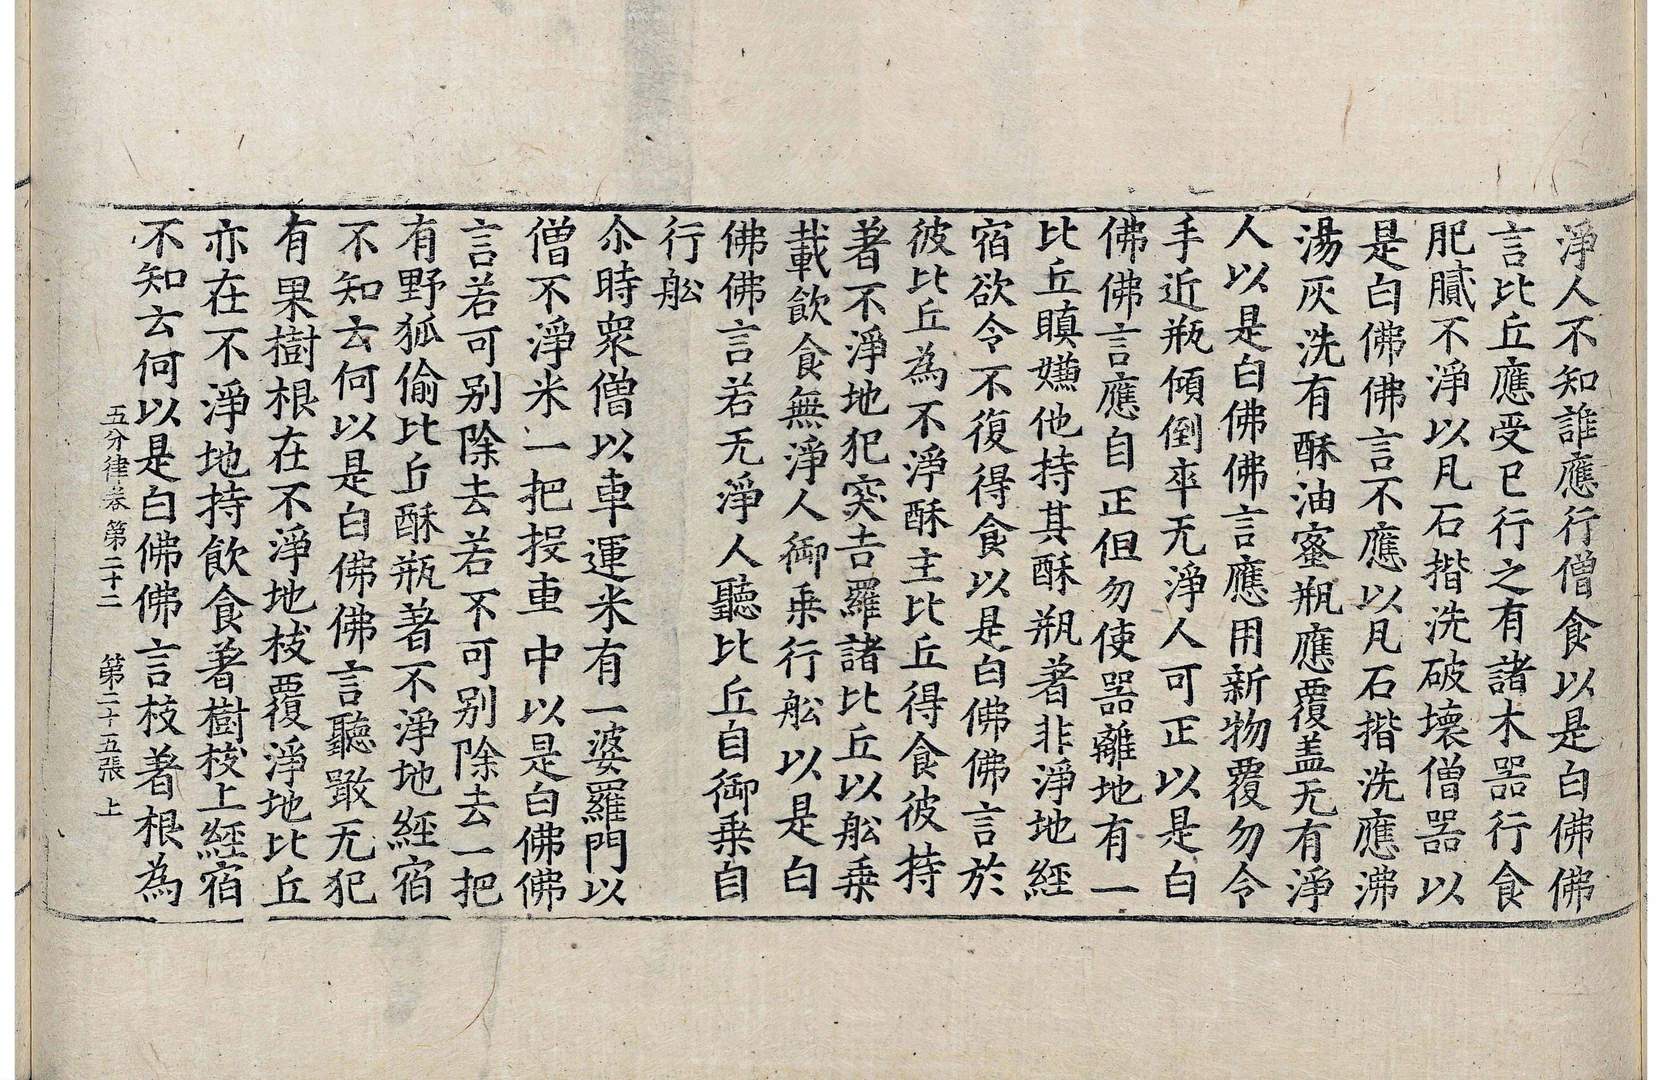 淨人不知誰應行僧食以是白佛佛
言比丘應受已行之有諸木器行食
肥膩不淨以凡石揩洗破壞僧器以
是白佛佛言不應以凡石揩洗應沸
湯灰洗有酥油蜜瓶應覆盖无有淨
人以是白佛佛言應用新物覆勿令
手近瓶傾倒卒无淨人可正以是白
佛佛言應自正但勿使器離地有一
比丘瞋嫌他持其酥瓶著非淨地經
宿欲令不復得食以是白佛佛言於
彼比丘為不淨酥主比丘得食彼持
著不淨地犯突吉羅諸比丘以舩乗
載飲食無淨人御乗行舩以是白
佛佛言若无淨人聽比丘自御乗自
行舩
尒時衆僧以車運米有一婆羅門以
僧不淨米一把投車中以是白佛佛
言若可别除去若不可别除去一把
有野狐偷比丘酥瓶著不淨地經宿
不知云何以是白佛佛言聽噉无犯
有果樹根在不淨地枝覆淨地比丘
亦在不淨地持飲食著樹枝上經宿
不知云何以是白佛佛言枝著根為
五分律卷第二十二 第二十五張 上